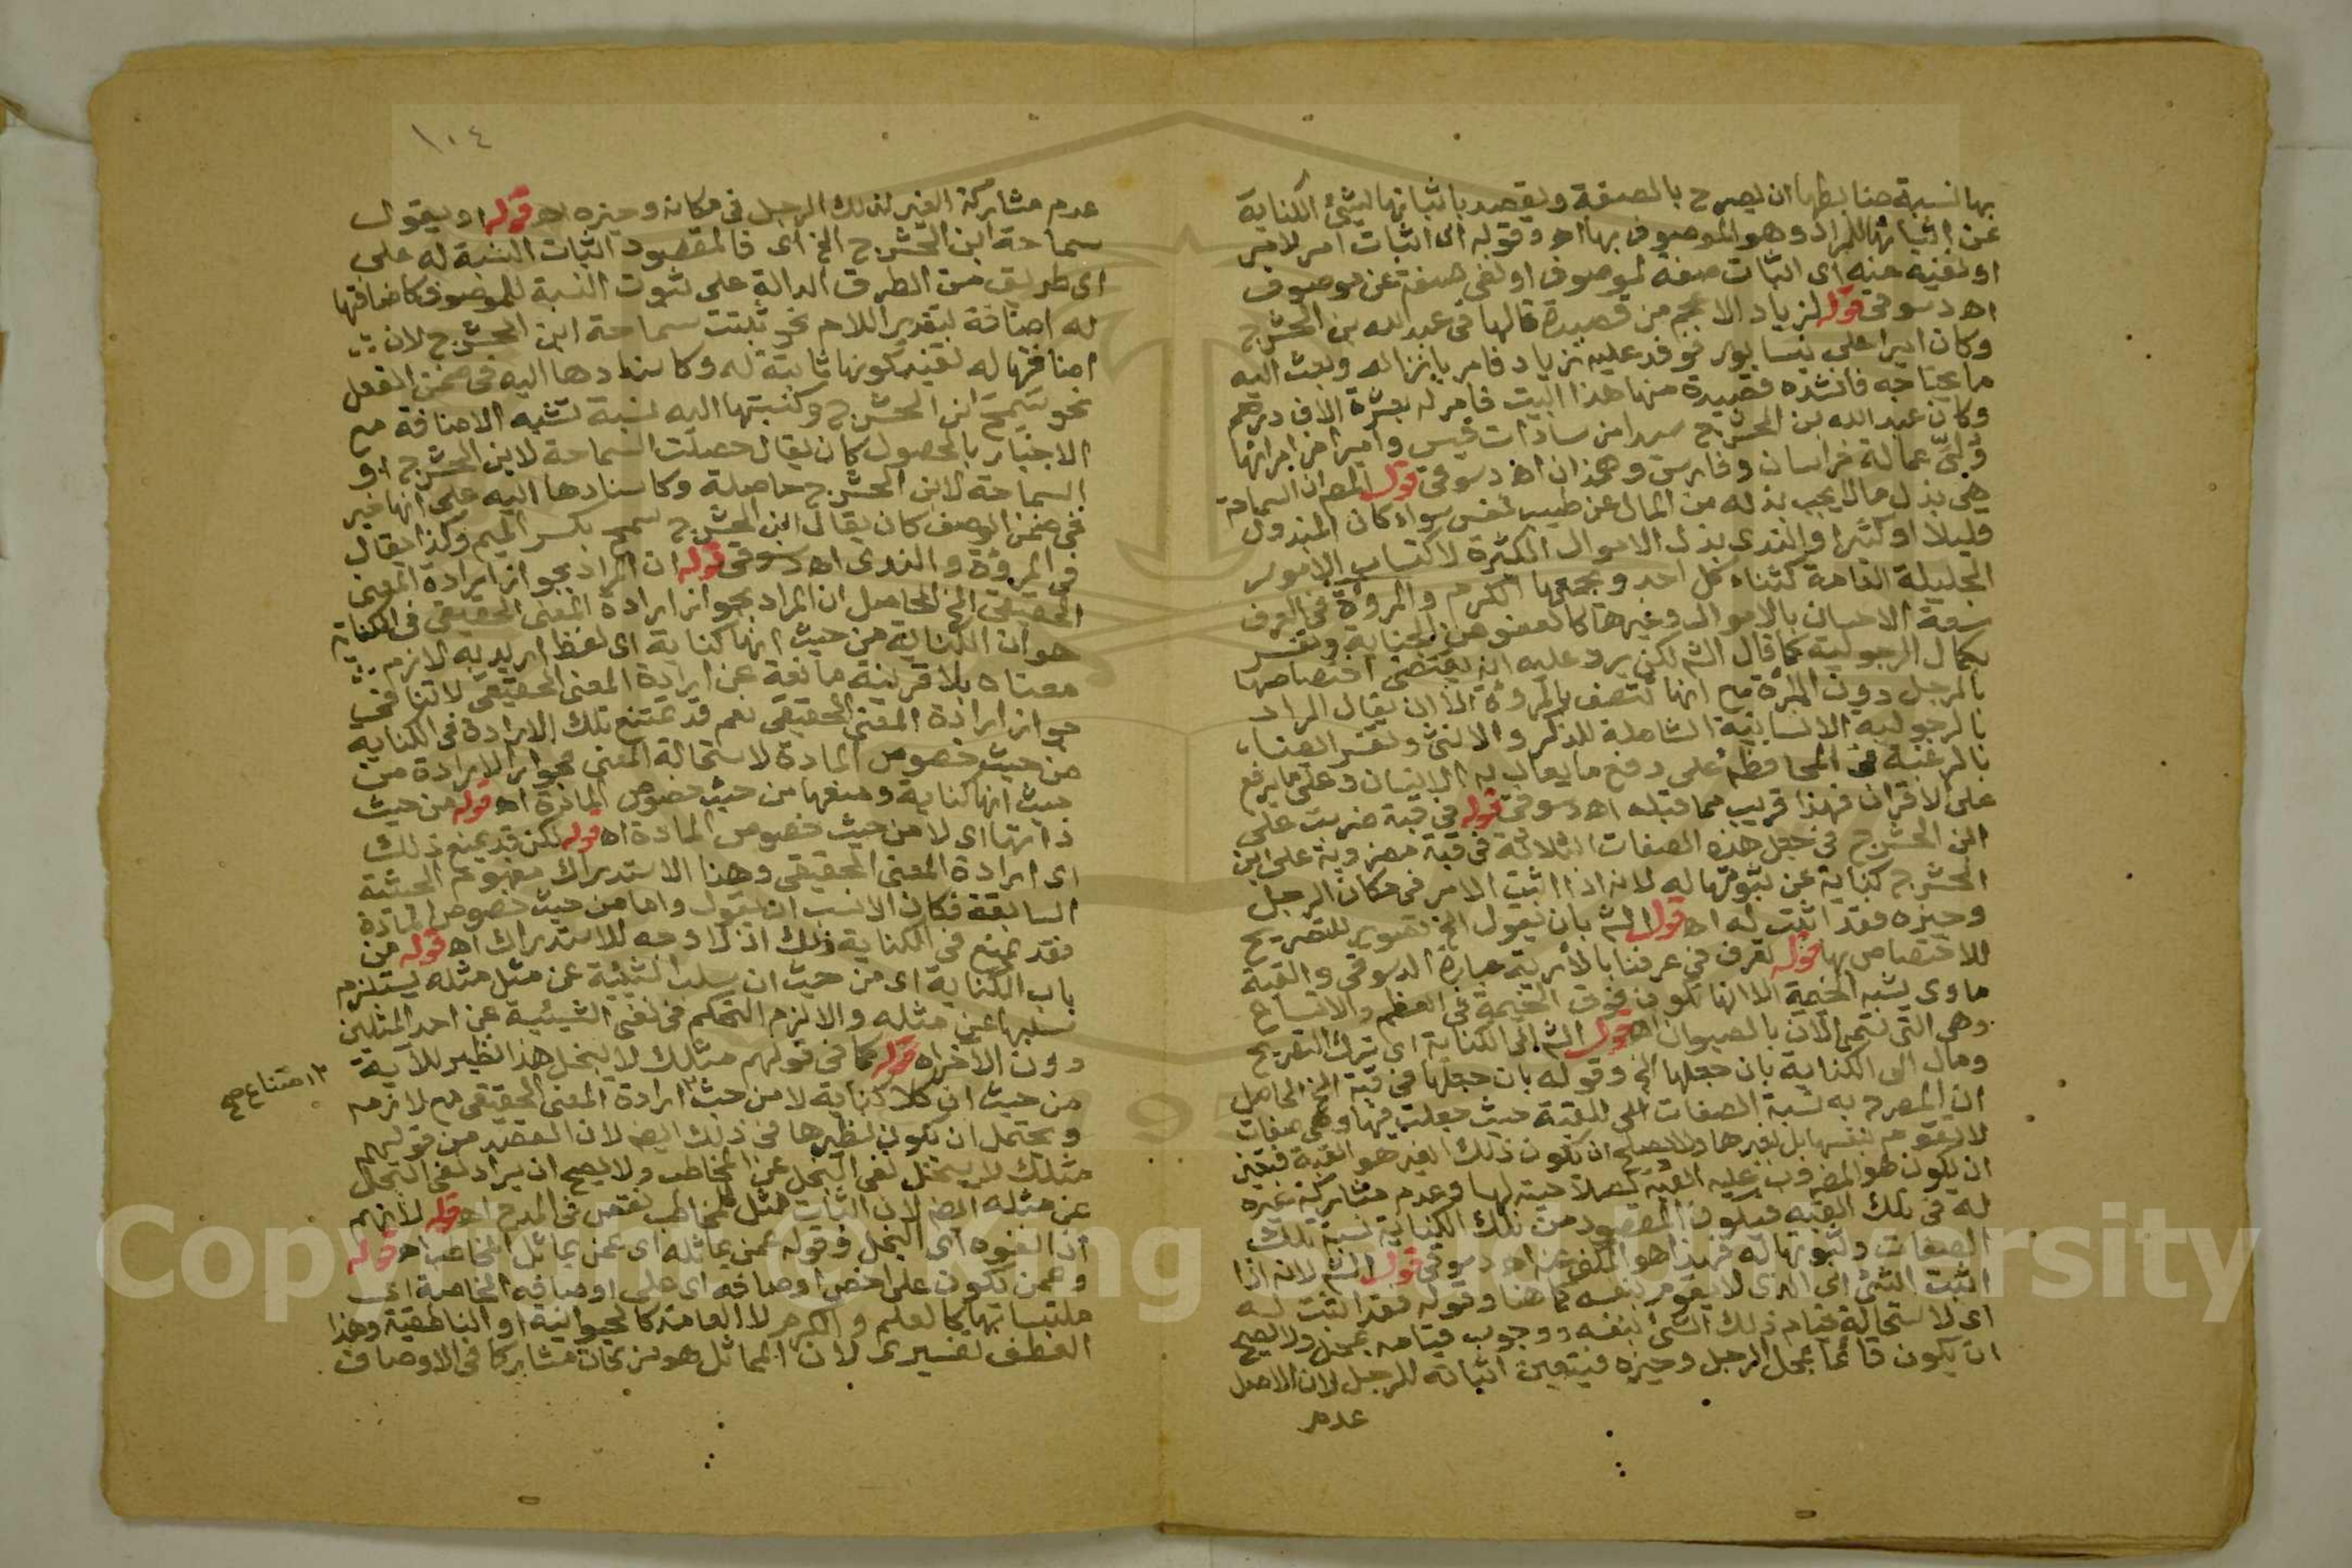 بها النسبة ضابطها ان يصرح بالصفة ويقصد باثباتها لشئ الكناية
عن اثباتها للمراد وهو الموصوف بها اه وقوله اى اثبات امر لامر
او نفيه عنه اى اثبات صفة لموصوف او نفى صفة عن موصوف
اه دسوقى قوله لزياد الاعجم من قصيدة قالها فى عبد الله بن الحشرج
وكان اميرا على نيسابور فوفد عليه زياد فامر بانزاله وبعث اليه
ما يحتاجه فانشده قصيدة منها هذا البيت فامر له بعشرة الاف درهم
وكان عبد الله بن الحشرج سيدا من سادات قيس واميرا من امرائها
ولى عمالة خراسان وفارس وهمذان اه دسوقى قول المص ان السماحة
هى بذل ما لا يجب بذله من المال عن طيب نفس سواء كان المبذول
قليلا او كثيرا والندى بذل الاموال الكثيرة لاكتساب الامور
الجليلة العامة كثناء كل احد ويجمعها الكرم والمروة فى العرف
سعة الاحسان بالاموال وغيرها كالعفو عن الجناية وتفسر
بكمال الرجولية كما قال الش لكن يرد عليه انه يقتضى اختصاصها
بالرجل دون المرأة مع انها تتصف بالمروة الا ان يقال المراد
بالرجولية الانسانية الشاملة للذكر والانثى وتفسر ايضا
بالرغبة فى المحافظة على دفع ما يعاب به الانسان وعلى ما يرفع
على الاقران فهذا قريب مما قبله اه دسوقى قوله فى قبة ضربت على
ابن الحشرج فى جعل هذه الصفات الثلاثة فى قبة مضروبة على ابن
الحشرج كناية عن ثبوتها له لانه اذا اثبت الامر فى مكان الرجل
وحيزه فقد اثبت له اه قول الش بان يقول الخ تصوير للتصريح
للاختصاص بها قوله تعرف فى عرفنا بالأ عبارة الدسوقى والقبة
ماوى يشبه الخيمة الا انها تكون فوق الخيمة فى العظم والاتساع
وهى التى تسمى الآن بالصيوان اه قول الش الى الكناية اى بترك التصريح
ومال الى الكناية بان جعلها الخ وقوله بان جعلها فى قبة الخ الحاصل
ان المصرح به نسبة الصفات الى القبة حيث جعلت فيها وهى صفات
لا تقوم بنفسها بل بغيرها ولا يصلح ان يكون ذلك الغير هو القبة فتعين
ان يكون هو المضروب عليه القبة لصلاحيته لها وعدم مشاركة غيره
له فى تلك القبة فيكون المقصود من تلك الكناية نسبة تلك
الصفات وثبوتها له فهذا هو المكنى عنه اه دسوقى قول الش لانه اذا
اثبت الشئ اى الذى لا يقوم بنفسه كما هنا وقوله فقد اثبت له
اى لاستحالة قيام ذلك الشئ بنفسه ووجوب قيامه بمحل ولا يصح
ان يكون قائما بمحل الرجل وحيزه فيتعين اثباته للرجل لان الاصل
عدم
١٠٤
عدم مشاركة الغير لذلك الرجل فى مكانه وحيزه اه قوله او يقول
سماحة ابن الحشرج الخ اى فالمقصود اثبات النسبة له على
اى طريق من الطرق الدالة على ثبوت النسبة للموصوف كاضافتها
له اضافة بتقدير اللام نحو ثبتت سماحة ابن الحشرج لان
اضافتها له تفيد كونها ثابتة له وكاسنادها اليه فى ضمن الفعل
نحو سمح ابن الحشرج وكنسبتها اليه نسبة تشبه الاضافة مع
الاخبار بالحصول كان يقال حصلت السماحة لابن الحشرج او
السماحة لابن الحشرج حاصلة وكاسنادها اليه على انها خبر
فى ضمن الوصف كان يقال ابن الحشرج سمح بكسر الميم وكذا يقال
فى المروة والندى اه دسوقى قوله ان المراد بجواز ارادة المعنى
الحقيقى الخ الحاصل ان المراد بجواز ارادة المعنى الحقيقى فى الكناية
هو ان الكناية من حيث انها كناية اى لفظ اريد به لازم
معناه بلا قرينة مانعة عن ارادة المعنى الحقيقى لا تنافى
جواز ارادة المعنى الحقيقى نعم قد تمتنع تلك الارادة فى الكناية
من حيث خصوص المادة لاستحالة المعنى فجواز الارادة من
حيث انها كناية ومنعها من حيث خصوص المادة اه قوله من حيث
ذاتها اى لا من حيث خصوص المادة اه قوله لكن قد يمنع ذلك
اى ارادة المعنى الحقيقى وهذا الاستدراك مفهوم الحيثية
السابقة فكان الانسب ان يقول واما من حيث خصوص المادة
فقد يمتنع فى الكناية ذلك اذ لا وجه للاستدراك اه قوله من
باب الكناية اى من حيث ان سلب الشيئية عن مثل مثله يستلزم
سلبها عن مثله والا لزم التحكم فى نفى الشيئية عن احد المثلين
دون الآخر اه قوله كما فى قولهم مثلك لا يبخل هذا نظير للآية
من حيث ان كلا كناية لا من حيث ارادة المعنى الحقيقى مع لازمه
امتناع صح
ويحتمل ان يكون نظيرها فى ذلك ايض لان القصد من قولهم
مثلك لا يبخل نفى البخل عن المخاطب ولا يصح ان يراد نفى البخل
عن مثله ايض لان اثبات مثل للمخاطب نقص فى المدح اه قوله لانهم
اذا نفوه اى البخل وقوله عمن يماثله اى عمن يماثل المخاطب اه قوله
وعمن يكون على اخص اوصافه اى على اوصافه الخاصة اى
ملتبسا بها كالعلم والكرم لا العامة كالحيوانية او الناطقية وهذا
العطف تفسيرى لان المماثل هو من كان مشاركا فى الاوصاف
Copyright © King Saud University